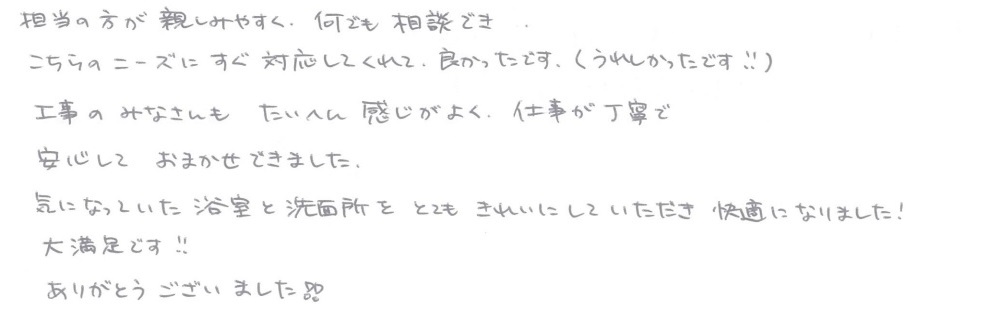 担当の方が親しみやすく、何でも相談でき
こちらのニーズにすぐ対応してくれて、良かったです。(うれしかったです!!)
工事のみなさんも たいへん 感じがよく、仕事が丁寧で
安心して おまかせできました。
気になっていた浴室と洗面所を とても きれいにしていただき 快適になりました!
大満足です!!
ありがとうございました!!